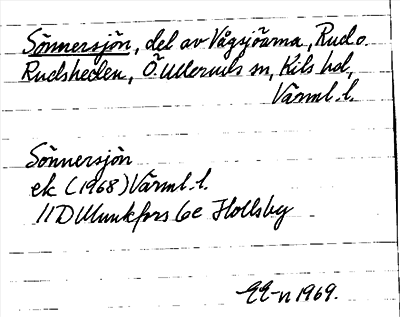 Sönnersjön, del av Vågsjöarna, Rud o.
Rudsheden, Ö. Ulleruds sn, Kils hd,
Värml. l.
Sönnersjön
ek (1968) Värml. l.
11D Munkfors 6e Hollsby
EE-n 1969.